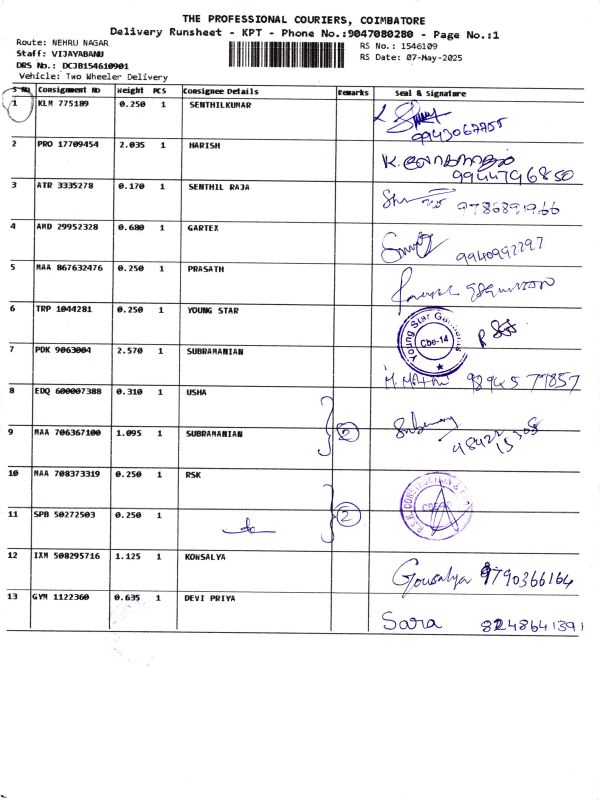 THE PROFESSIONAL COURIERS, COIMBATORE
Delivery Runsheet - KPT - Phone No.:9047080280 - Page No.:1
Route: NEHRU NAGAR
RS No.: 1546109
Staff: VIJAYABANU
RS Date: 07-May-2025
DRS No.: DCJB154610901
Vehicle: Two Wheeler Delivery
S No Consignment No Weight PCS Consignee Details Remarks Seal & Signature
1 KLM 775189 0.250 1 SENTHILKUMAR
9943067755
2 PRO 17709454 2.035 1 HARISH
9944796850
3 ATR 3335278 0.170 1 SENTHIL RAJA
9786891966
4 AMD 29952328 0.680 1 GARTEX
9940992297
5 MAA 867632476 0.250 1 PRASATH
6 TRP 1044281 0.250 1 YOUNG STAR
Young Star Cbe-14
7 PDK 9063004 2.570 1 SUBRAMANIAN
9894577857
8 EDQ 600007388 0.310 1 USHA
9 MAA 706367100 1.095 1 SUBRAMANIAN 2
98422
10 MAA 708373319 0.250 1 RSK
R.S.K. CONSTRUCTION &
11 SPB 50272503 0.250 1 2
12 IXM 508295716 1.125 1 KOWSALYA
Gousalya 9790366164
13 GYM 1122360 0.635 1 DEVI PRIYA
Sara 8248641391